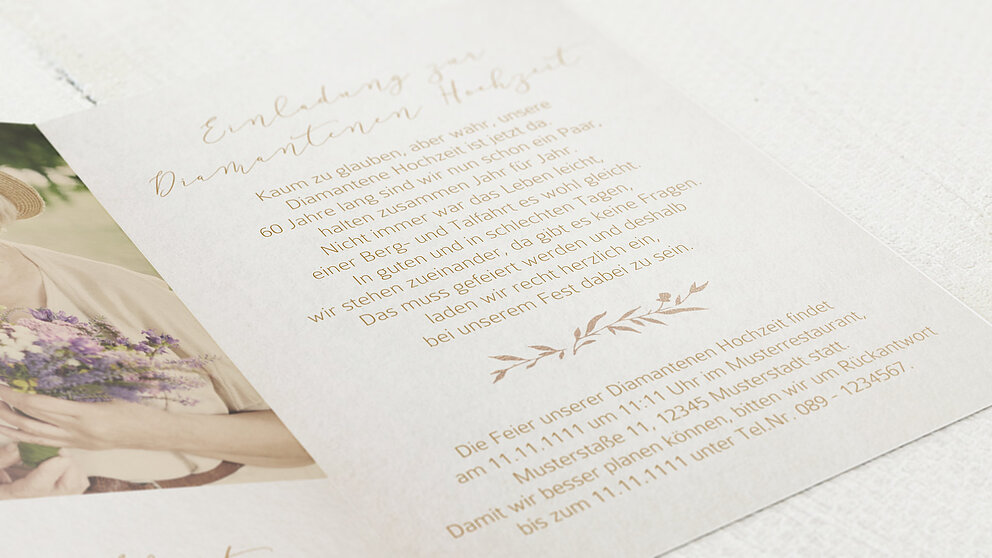 Einladung zur
Diamantenen Hochzeit
Kaum zu glauben, aber wahr, unsere
Diamantene Hochzeit ist jetzt da.
60 Jahre lang sind wir nun schon ein Paar,
halten zusammen Jahr für Jahr.
Nicht immer war das Leben leicht,
einer Berg- und Talfahrt es wohl gleicht.
In guten und in schlechten Tagen,
wir stehen zueinander, da gibt es keine Fragen.
Das muss gefeiert werden und deshalb
laden wir recht herzlich ein,
bei unserem Fest dabei zu sein.
Die Feier unserer Diamantenen Hochzeit findet
am 11.11.1111 um 11:11 Uhr im Musterrestaurant,
Musterstraße 11, 12345 Musterstadt statt.
Damit wir besser planen können, bitten wir um Rückantwort
bis zum 11.11.1111 unter Tel.Nr. 089 - 1234567.